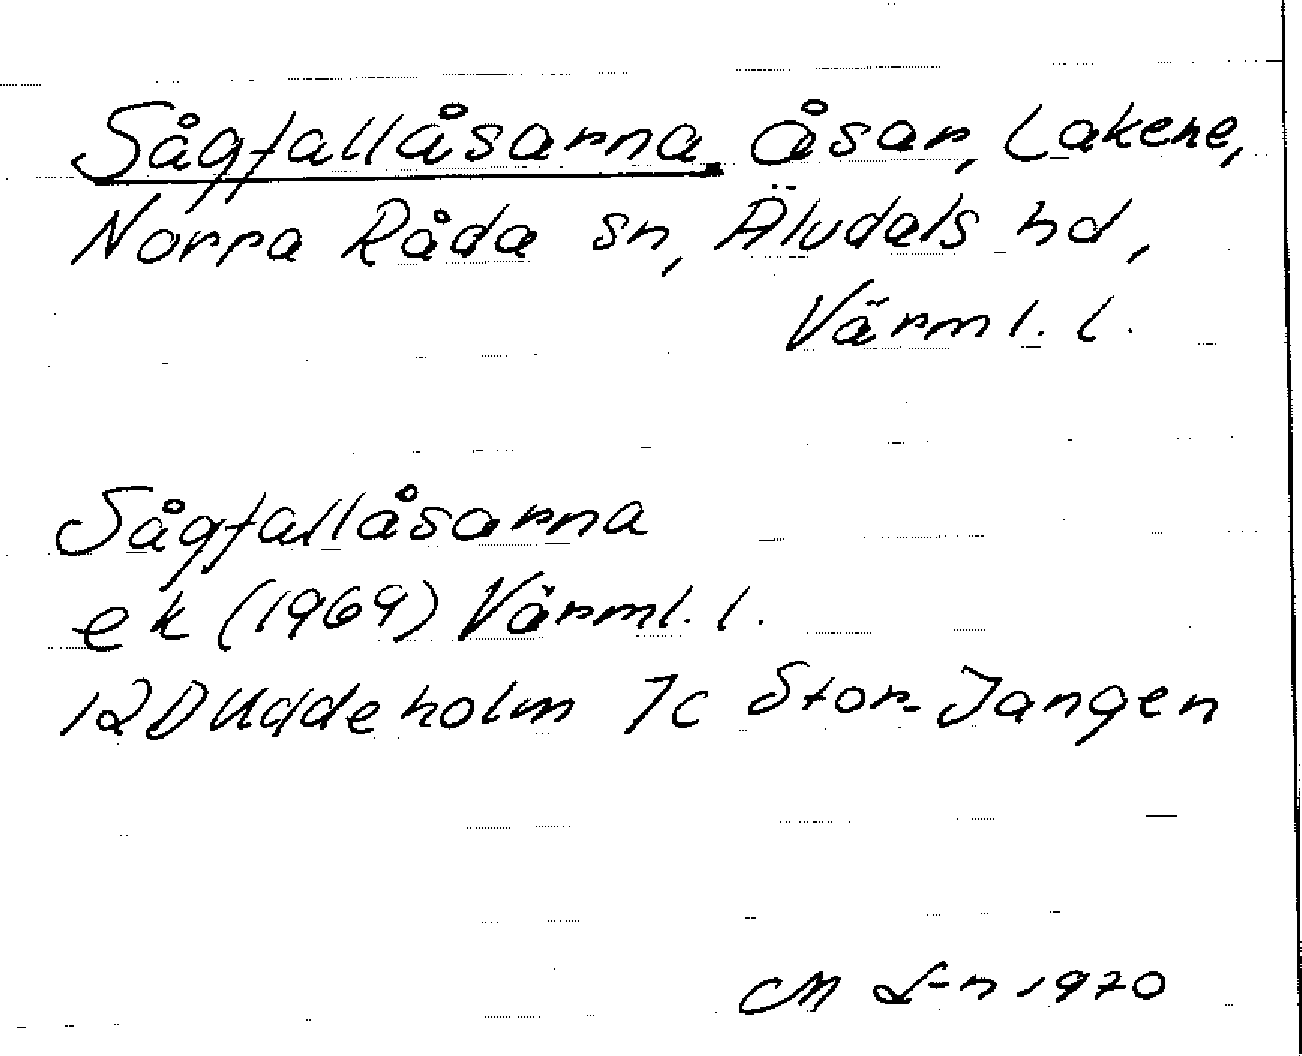 Sågfallåsarna, åsar, Lakene,
Norra Råda sn, Älvdals hd,
Värml. l.
Sågfallåsarna
ek (1969) Värml. l.
12D Uddeholm 7c Stor-Jangen
CM L-n 1970